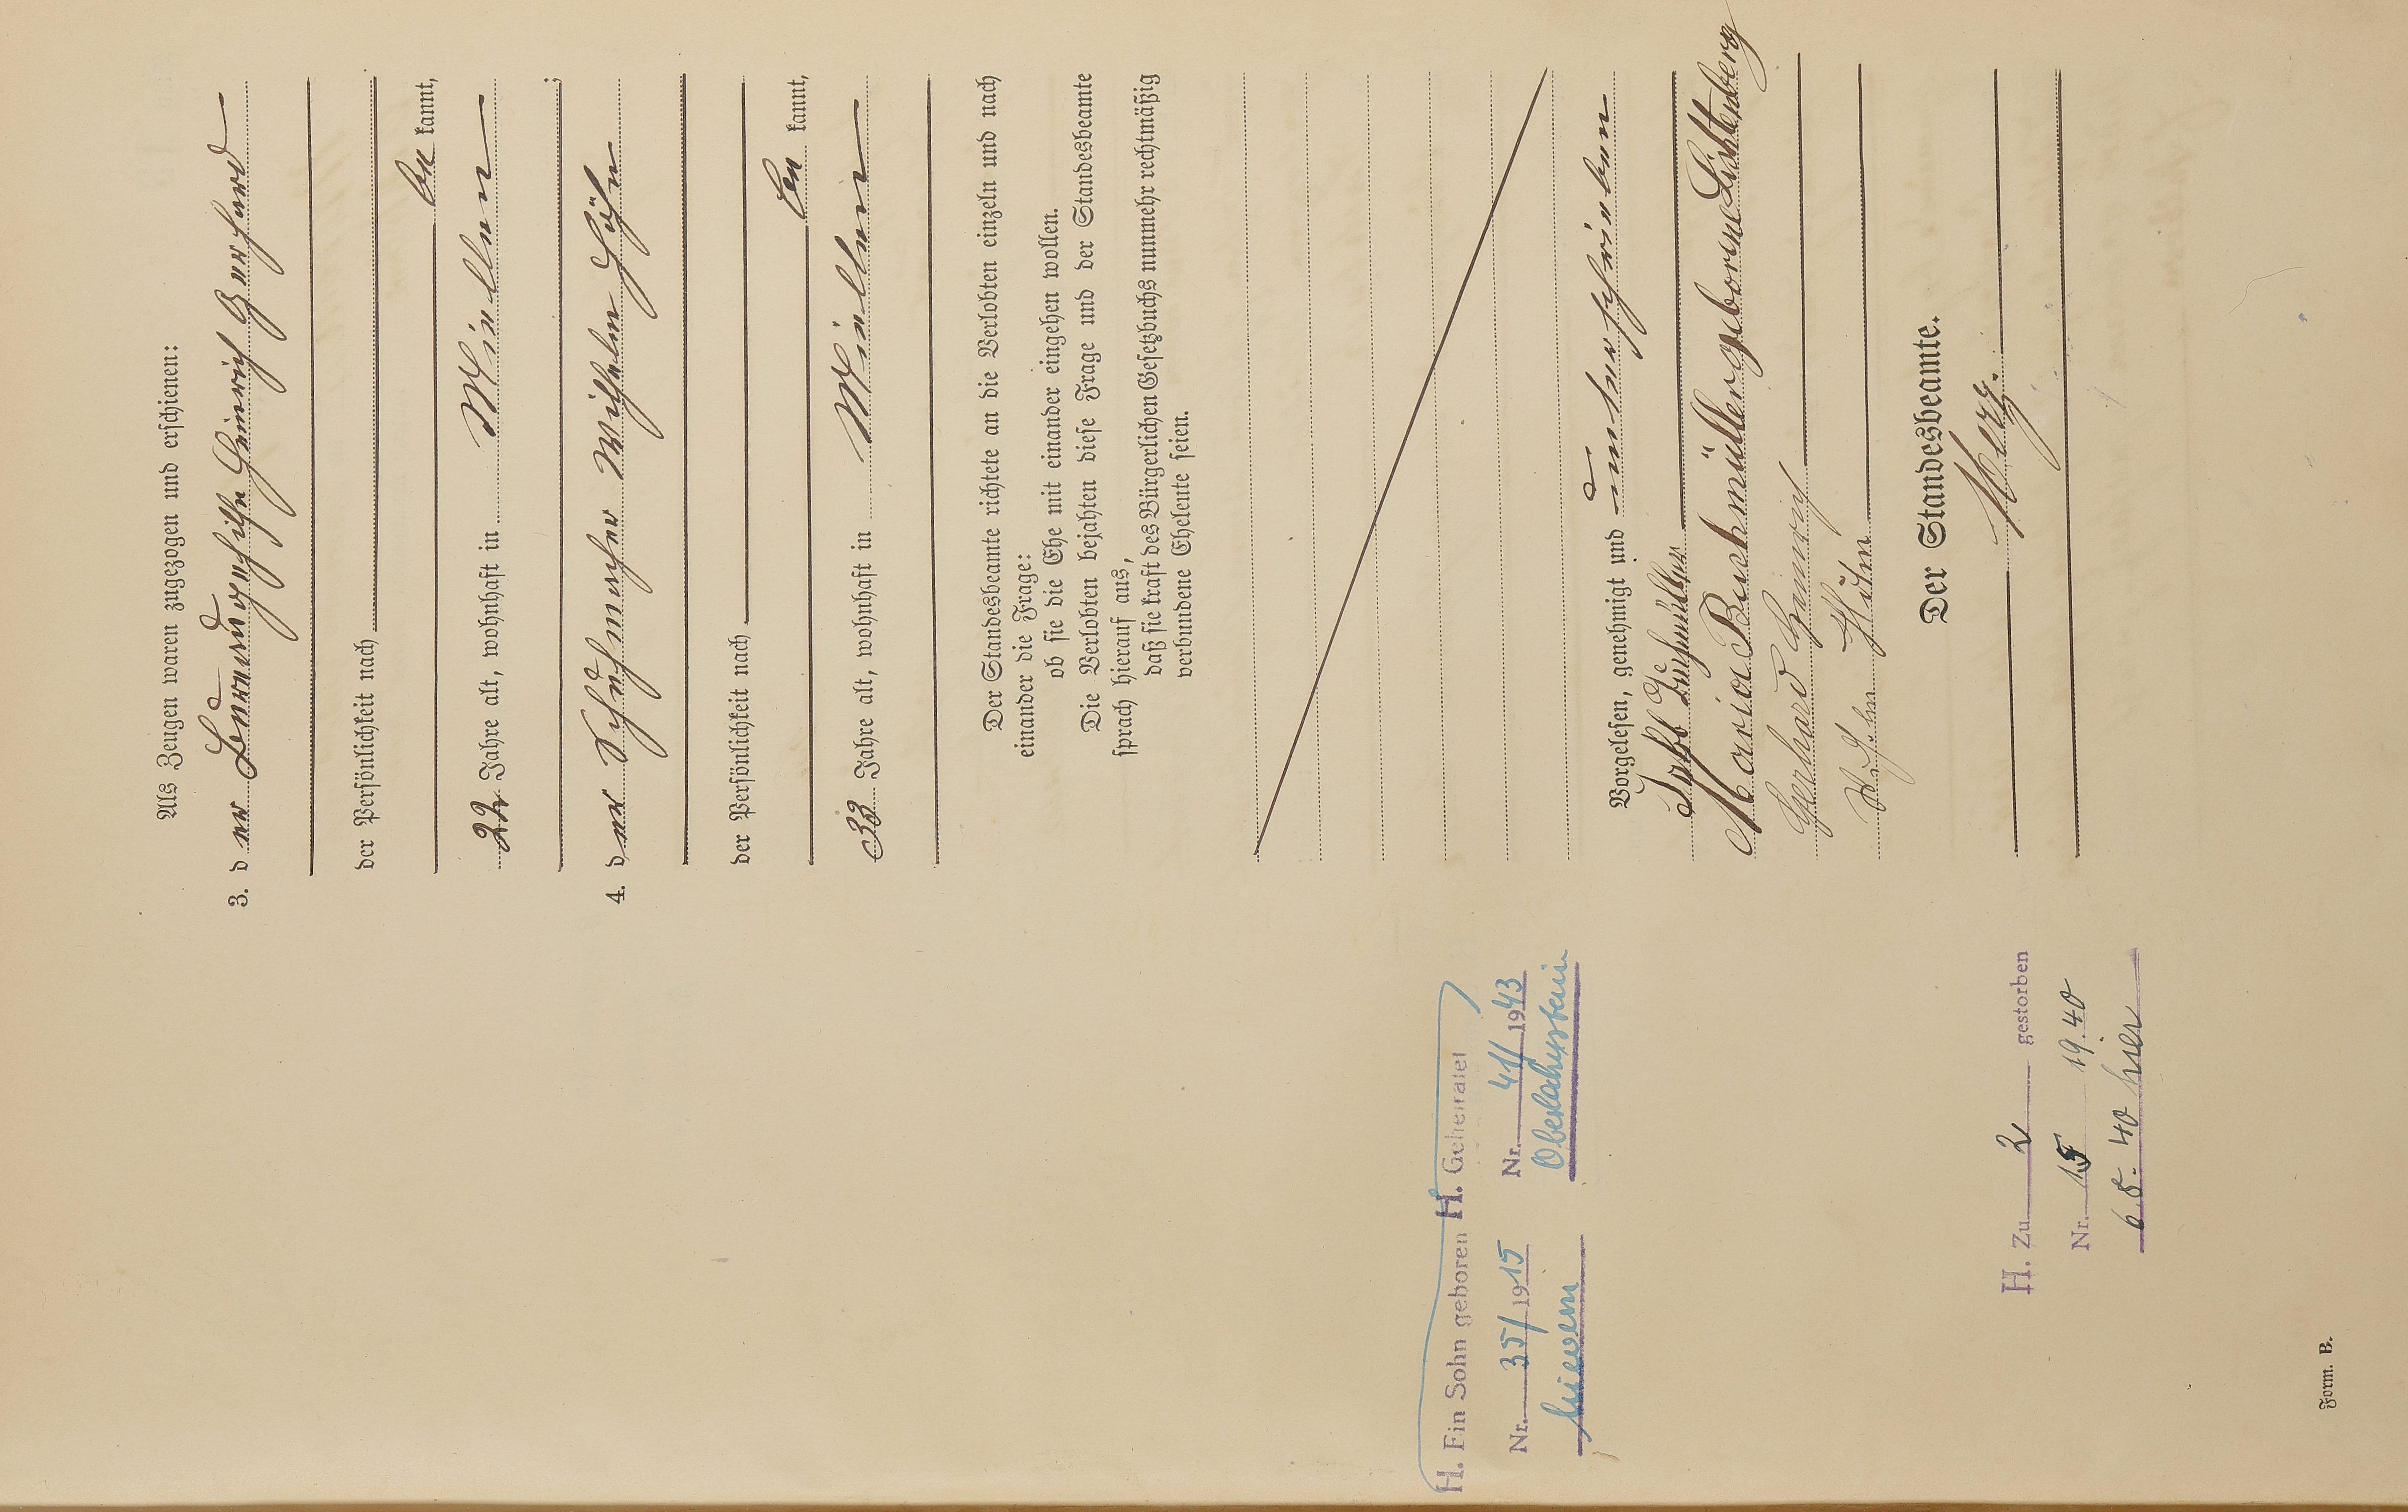 Als Zeugen waren zugezogen und erschienen:
3. der Heinrich Gerhard
der Persönlichkeit nach
be kannt,
22 Jahre alt, wohnhaft in Miellen
;
4. der Schuhmacher Wilhelm Hühn
der Persönlichkeit nach
be kannt,
33 Jahre alt, wohnhaft in Miellen
Der Standesbeamte richtete an die Verlobten einzeln und nach
einander die Frage:
ob sie die Ehe mit einander eingehen wollen.
Die Verlobten bejahten diese Frage und der Standesbeamte
sprach hierauf aus,
daß sie kraft des Bürgerlichen Gesetzbuchs nunmehr rechtmäßig
verbundene Eheleute seien.
Vorgelesen, genehmigt und unterschrieben
Buchmüller
Maria Buchmüller geborene Lichtenberg
Gerhard Heinrich
Wilhelm Hühn
Der Standesbeamte.
Merz.
H. Ein Sohn geboren
Nr. 35/1915
Nievern
H. Geheiratet
Nr. 41/1943
Oberlahnstein
H. Zu 2 gestorben
Nr. 15 19.40
6.5.40 hier
Form. B.